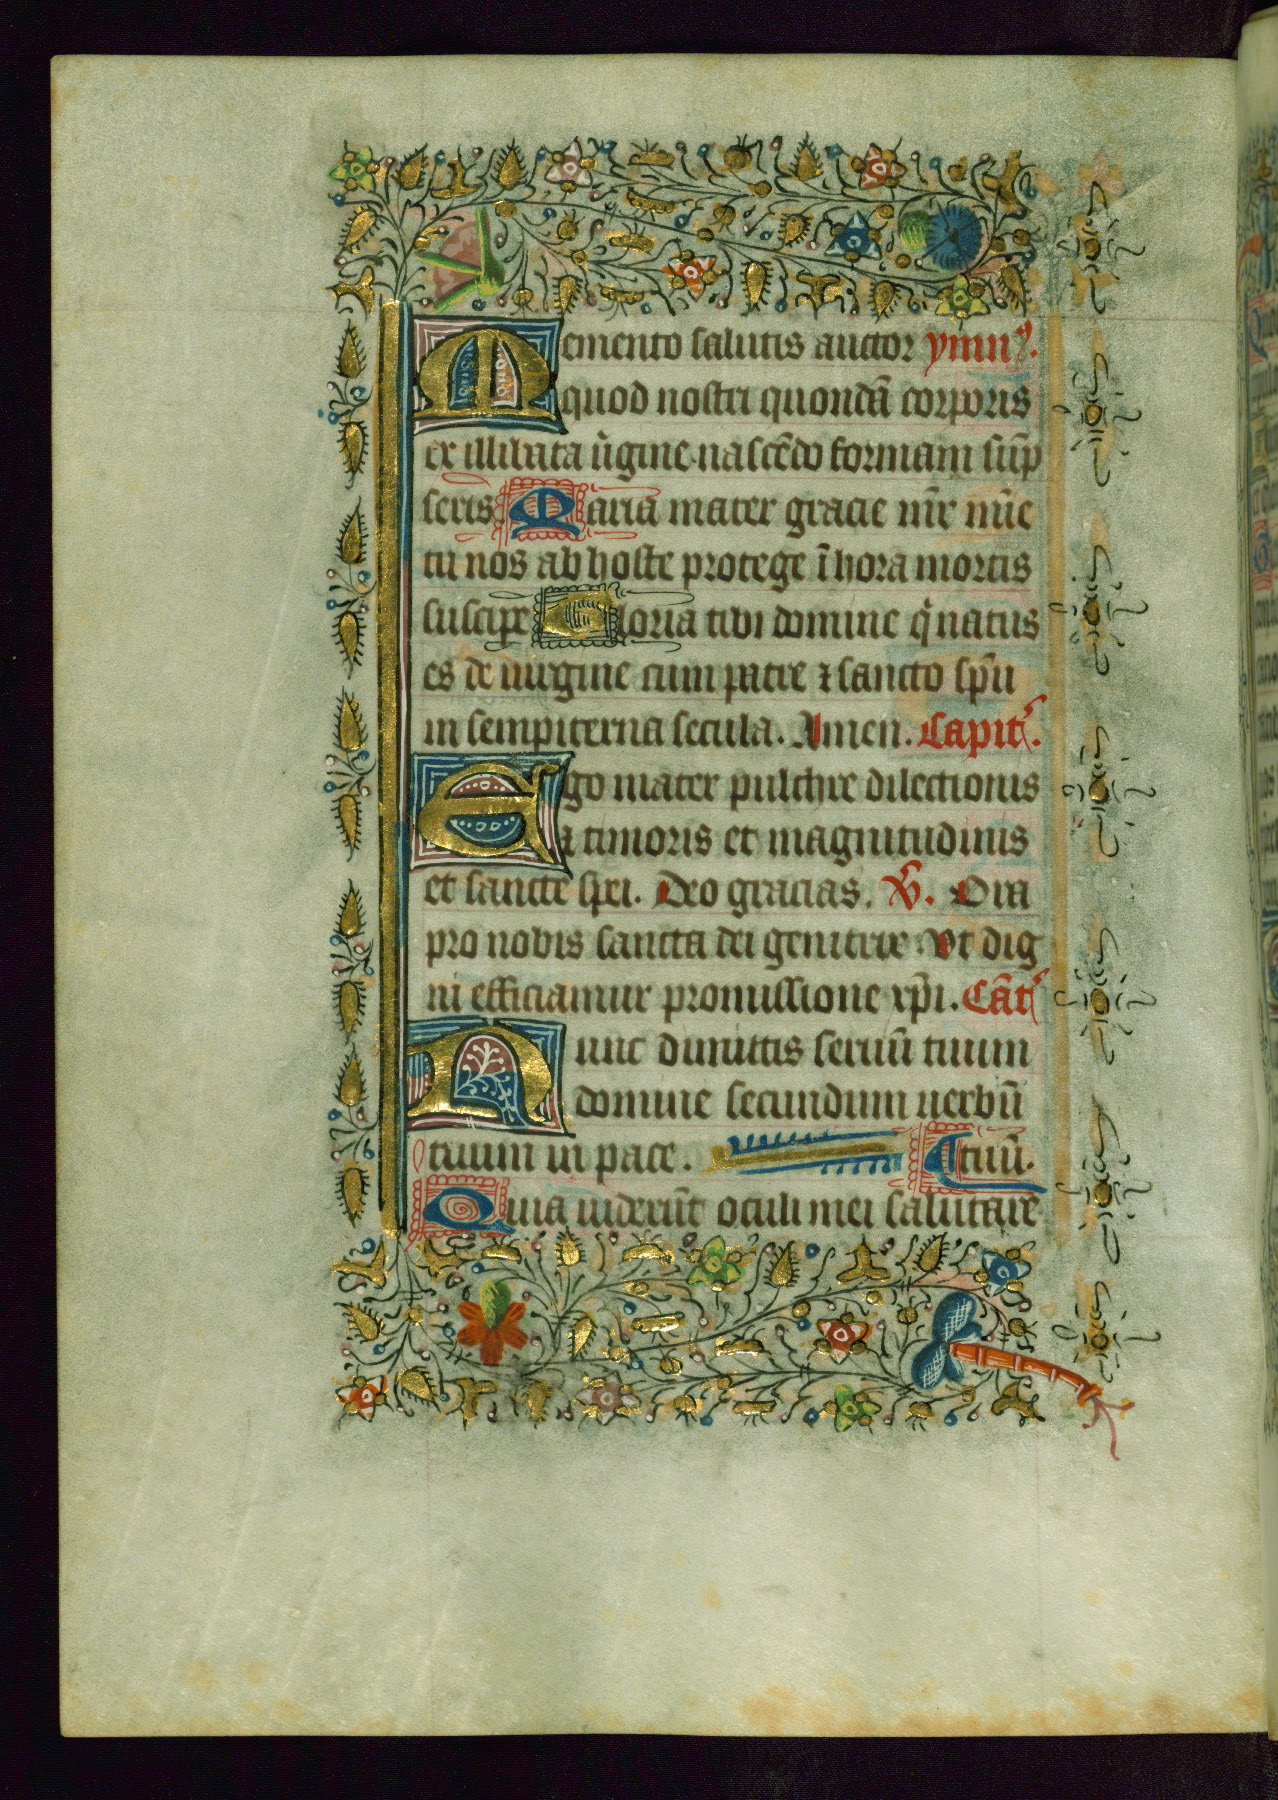 Memento salutis auctor ymnꝰ.
quod nostri quondā corporis
ex illibata ůgine nascēdo formam sūp
seris Maria mater gracie mr̄ mīe
tu nos ab hoste protege ī hora mortis
suscipe Gloria tibi domine q̓ natus
es de uirgine cum patre ⁊ sancto sp̄u
in sempiterna secula. Amen. Capit̉.
Ego mater pulchre dilectionis
a timoris et magnitudinis
et sancte spei. Deo gracias. ℣. Ora
pro nobis sancta dei genitrix Vt dig
ni efficiamur promissione xp̄i. Cāt̉
Nunc dimittis seruū tuum
domine secundum uerbū
tuum in pace. tuū.
Quia uiderūt oculi mei salutare